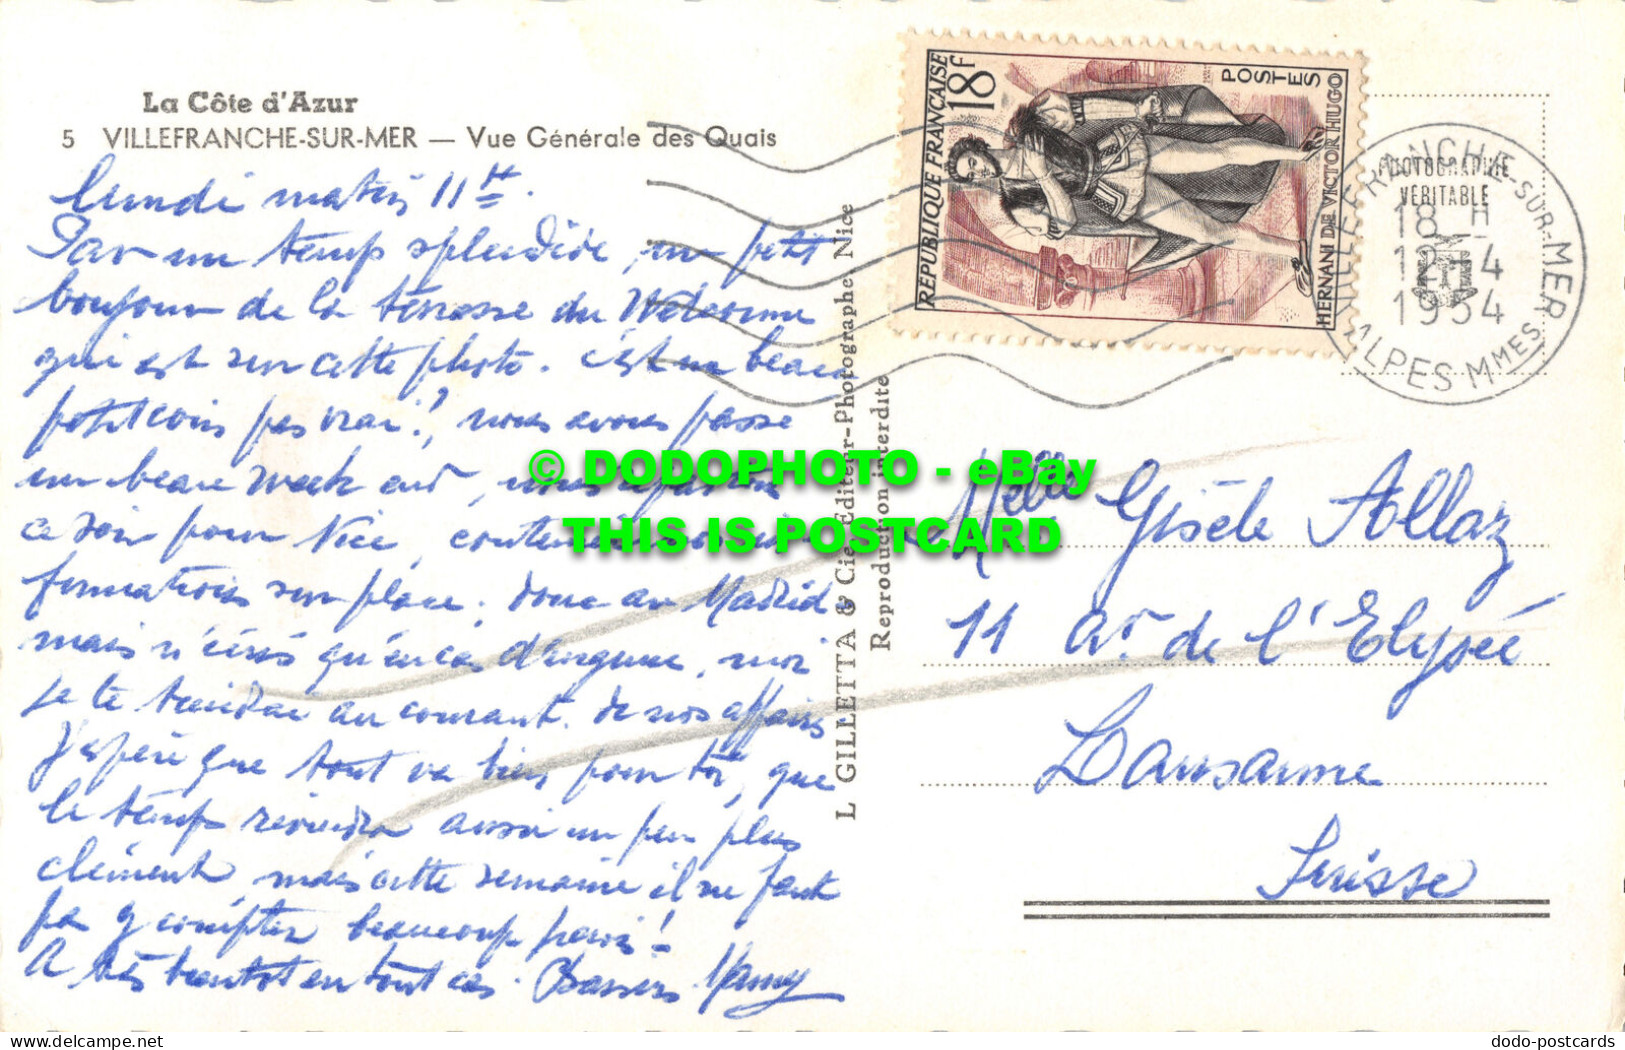 La Côte d'Azur
5 VILLEFRANCHE-SUR-MER — Vue Générale des Quais
lundi matin 11 H.
Par un temps splendide, un petit
bonjour de la terrasse du Welcome
qui est sur cette photo. C'est un beau
petit coin pas vrai!, nous avons passé
un beau week end, nous
ce soir pour Nice,
formations sur place. donc au Madrid
mais qu'en cas d'urgence, moi
je te tiendrai au courant. de nos affaires
J'espère que tout va bien pour toi, que
le temps reviendra aussi un peu plus
clément, mais cette semaine il ne faut
pas y compter beaucoup
A très bientôt en tout cas. Baisers
L GILLETTA & Cie Editeur-Photographe Nice
Reproduction interdite
REPUBLIQUE FRANÇAISE
18f
POSTES
HERNANI DE VICTOR HUGO
PHOTOGRAPHIE
VÉRITABLE
VILLEFRANCHE-SUR-MER
18 H
12-4
1954
ALPES MMES
Melle Gisèle Allaz
11 av. de l'Elysée
Lausanne
Suisse
© DODOPHOTO - eBay
THIS IS POSTCARD
dodo-postcards